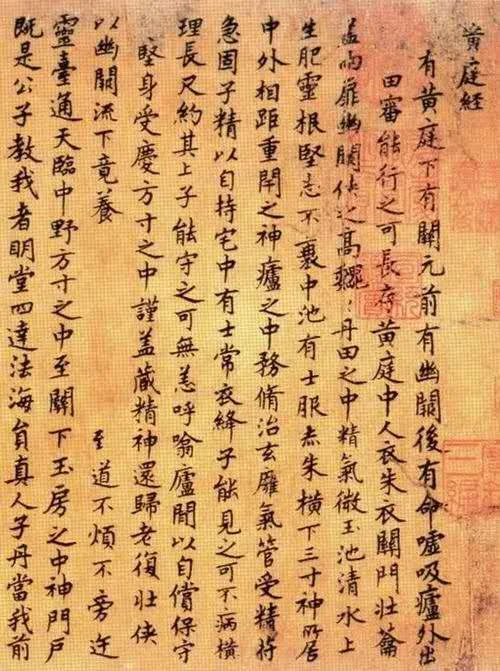 黃庭経
有黃庭下有關元前有幽闕後有命噓吸廬外出
田審能行之可長存黃庭中人衣朱衣關門壯蘥
蓋两扉幽闕俠之高巍〻丹田之中精氣微玉池清水上
生肥靈根堅志不衰中池有士服赤朱橫下三寸神所居
中外相距重閇之神廬之中務脩治玄廱氣管受精符
急固子精以自持宅中有士常衣絳子能見之可不病橫
理長尺約其上子能守之可無恙呼噏廬間以自償保守
堅身受慶方寸之中謹蓋藏精神還歸老復壯俠
以幽闕流下竟養 至道不煩不旁迕
靈臺通天臨中野方寸之中至關下玉房之中神門戶
既是公子教我者明堂四達法海員真人子丹當我前